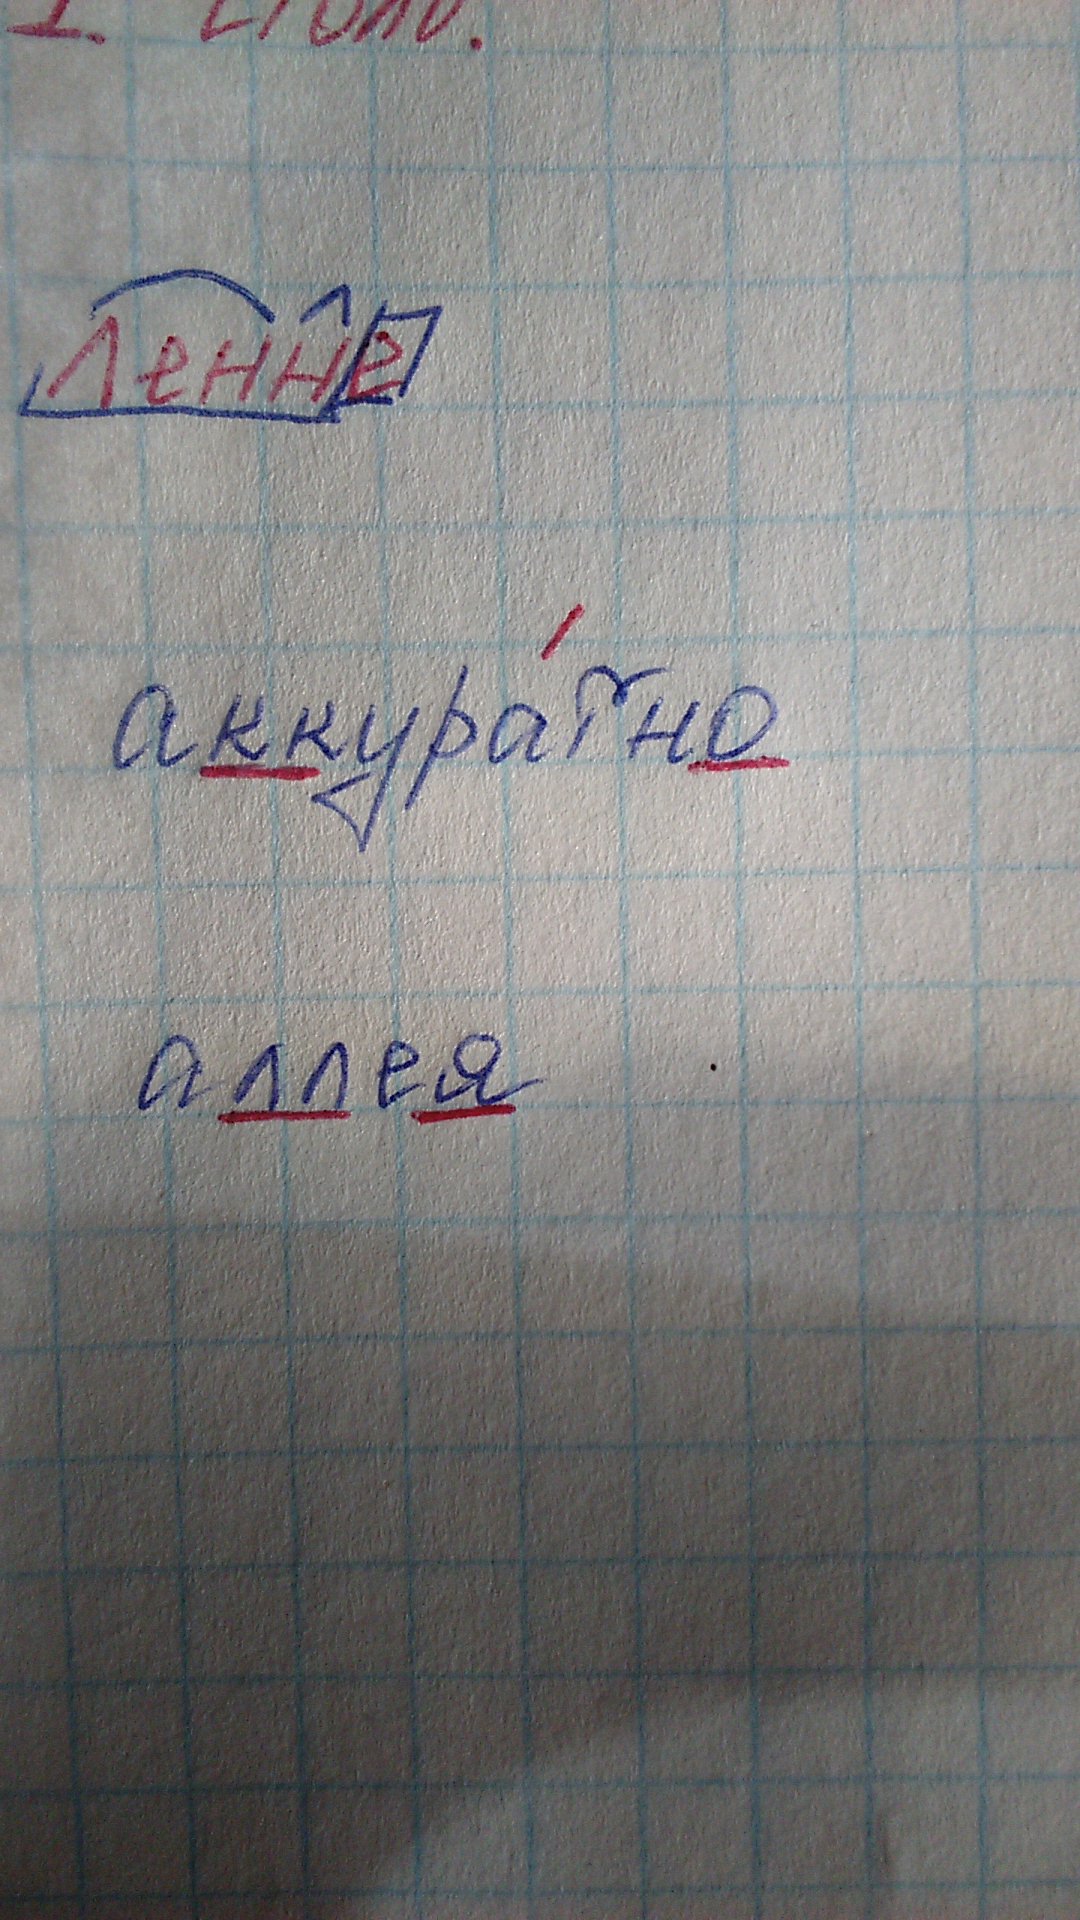 Ленне
аккура́тно
аллея